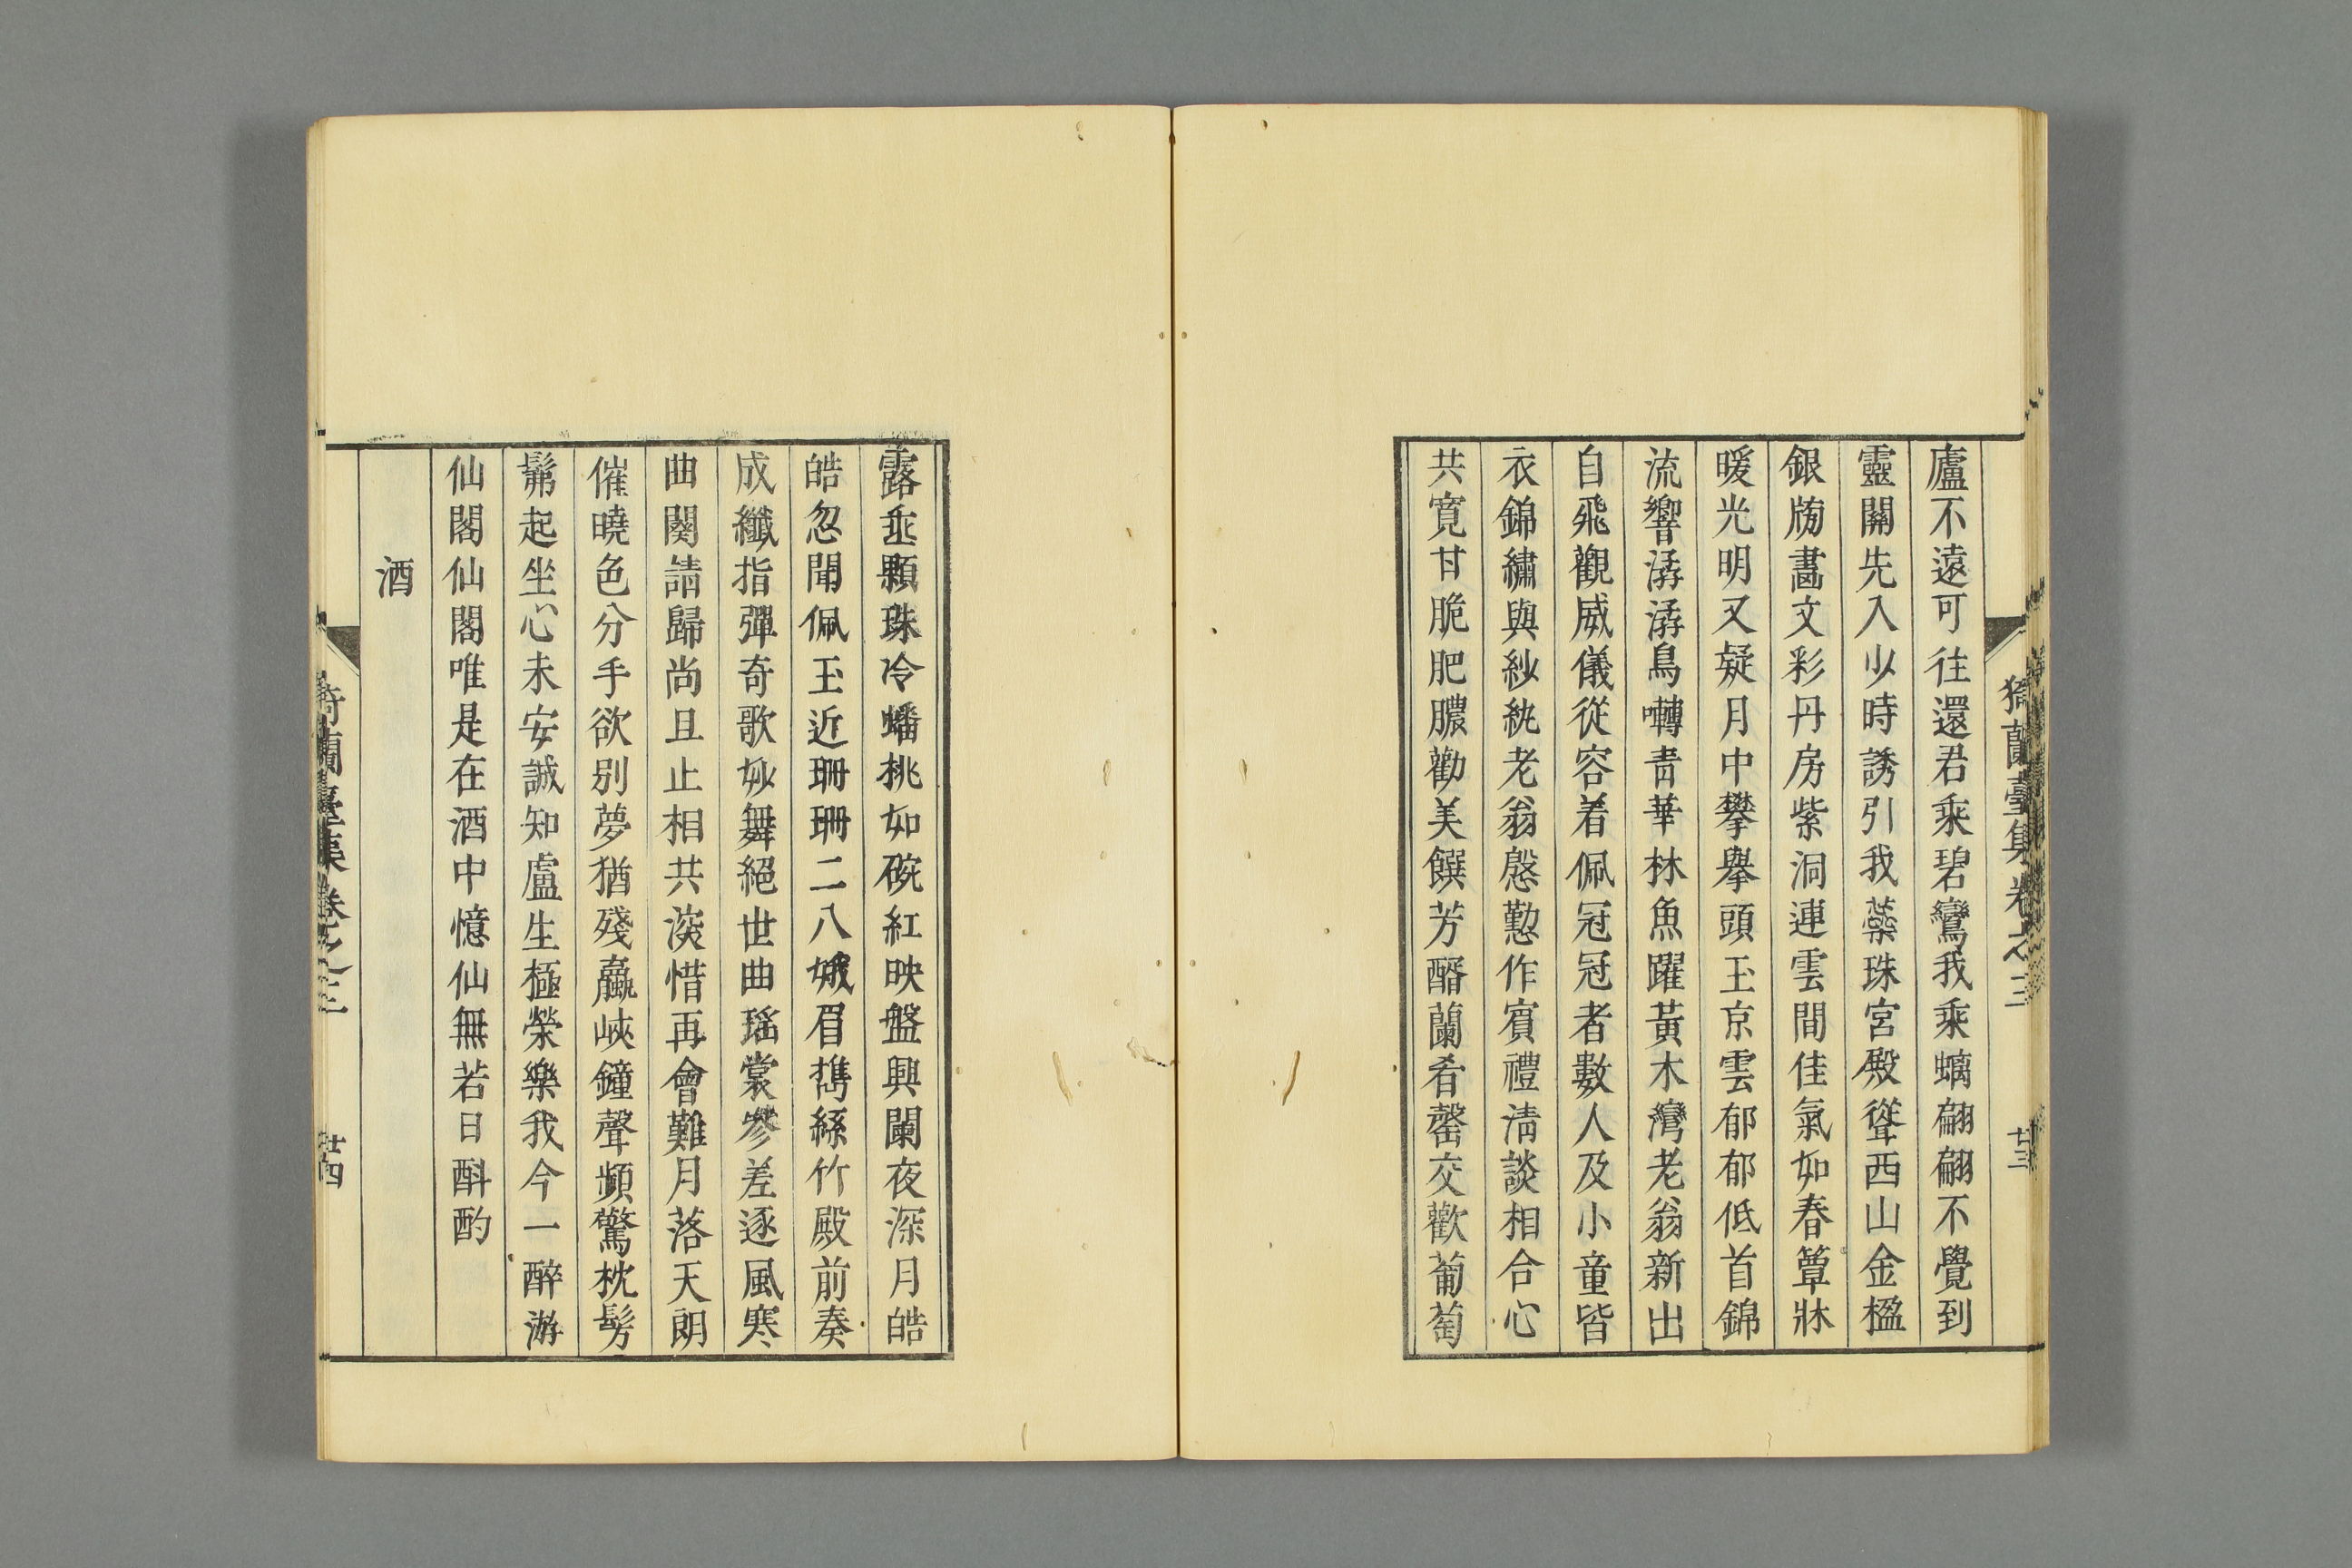 猗蘭臺集卷之三 廿三
廬不遠可往還君乘碧鸞我乘螭翩翩不覺到
靈關先入少時誘引我蘂珠宮殿聳西山金楹
銀牓畵文彩丹房紫洞連雲間佳氣如春簟牀
暖光明又疑月中攀擧頭玉京雲郁郁低首錦
流響潺潺鳥囀靑華林魚躍黃木灣老翁新出
自飛觀威儀從容着佩冠冠者數人及小童皆
衣錦繡與紗紈老翁慇懃作賓禮淸談相合心
共寬甘脆肥膿勸美饌芳醑蘭肴罄交歡葡萄
露垂顆珠冷蟠桃如碗紅映盤興闌夜深月皓
皓忽聞佩玉近珊珊二八娥眉携絲竹殿前奏
成纖指彈奇歌妙舞絕世曲瑤裳參差逐風寒
曲闋請歸尚且止相共淡惜再會難月落天朗
催曉色分手欲別夢猶殘巫峽鐘聲頻驚枕髣
髴起坐心未安誠知盧生極榮樂我今一醉游
仙閣仙閣唯是在酒中憶仙無若日斟酌
酒
猗蘭臺集卷之三 廿四